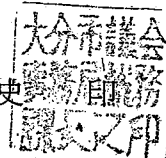 大分市議会
事務局総務
課長之印
史印